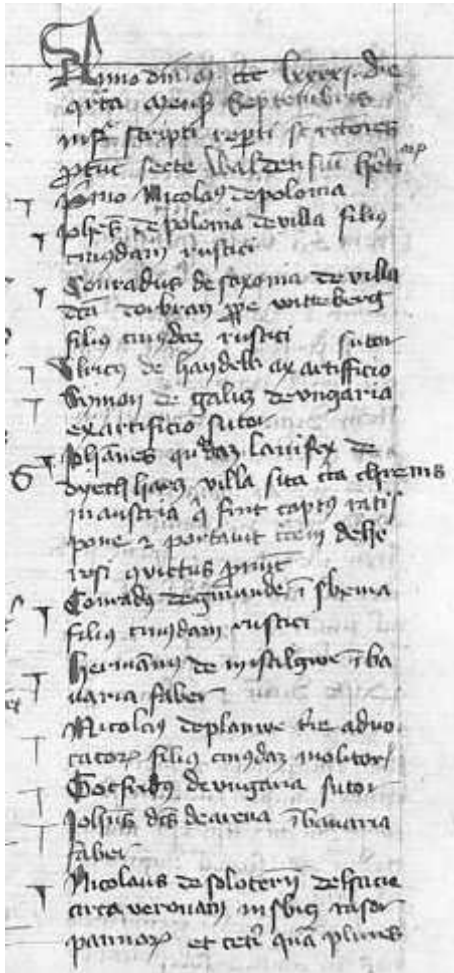 Anno dni m ccc lxxxxi die
qrta mensis Septembris
infra scripti reperti st rectores
ptunc secte Waldensium heti corp
primo Nicolaus de polonia
Johes de polonia de villa filius
cuiusdam rustici
Conradus de saxonia de villa
dcta doubran ppe witteberg
filius cuiusdaz rustici sutor
Ulricus de haydek ex artifficio
Symon de galicz de ungaria
ex artificio sutor
Johanes quidaz lanifex de
dyech villa sita circa chrems
in austria q fuit captus ratis
pone et portavit crucem de he
resi convictus
Conradus de gmunde i sbevia
filius cuiusdam rustici
Hermanus de mistelgew i ba
varia faber
Nicolaus de planwe tre advo
catorz filius cuiusdaz molitor
Gotfridus de ungaria sutor
Johes dcs de arena i bavaria
faber
Nicolaus de soloterm de
circa veronam rasor
pannorz et ceti qua plures